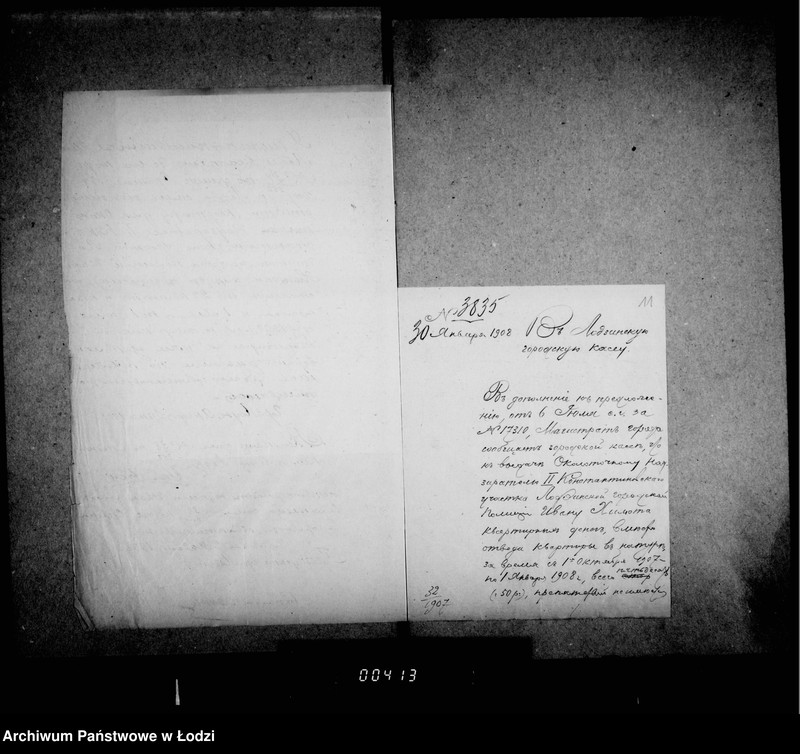 11
№ 3835
30 Января 1908
Въ Лодзинскую
городскую кассу.
Въ дополненіе къ предложе-
нію отъ 6 Іюля с.г. за
№ 17310, Магистратъ города
сообщаетъ городской кассѣ, что
къ выдачѣ Околоточному Над-
зирателю II Константиновскаго
участка Лодзинской городской
Полиціи Ивану
квартирныхъ денегъ, взамѣнъ
отвода квартиры въ натурѣ,
за время съ 1го Октября 1907
по 1 Января 1908 г., всего пятьдесятъ
(50 р), препятствій не имѣется
32
1907
00413
Archiwum Państwowe w Łodzi